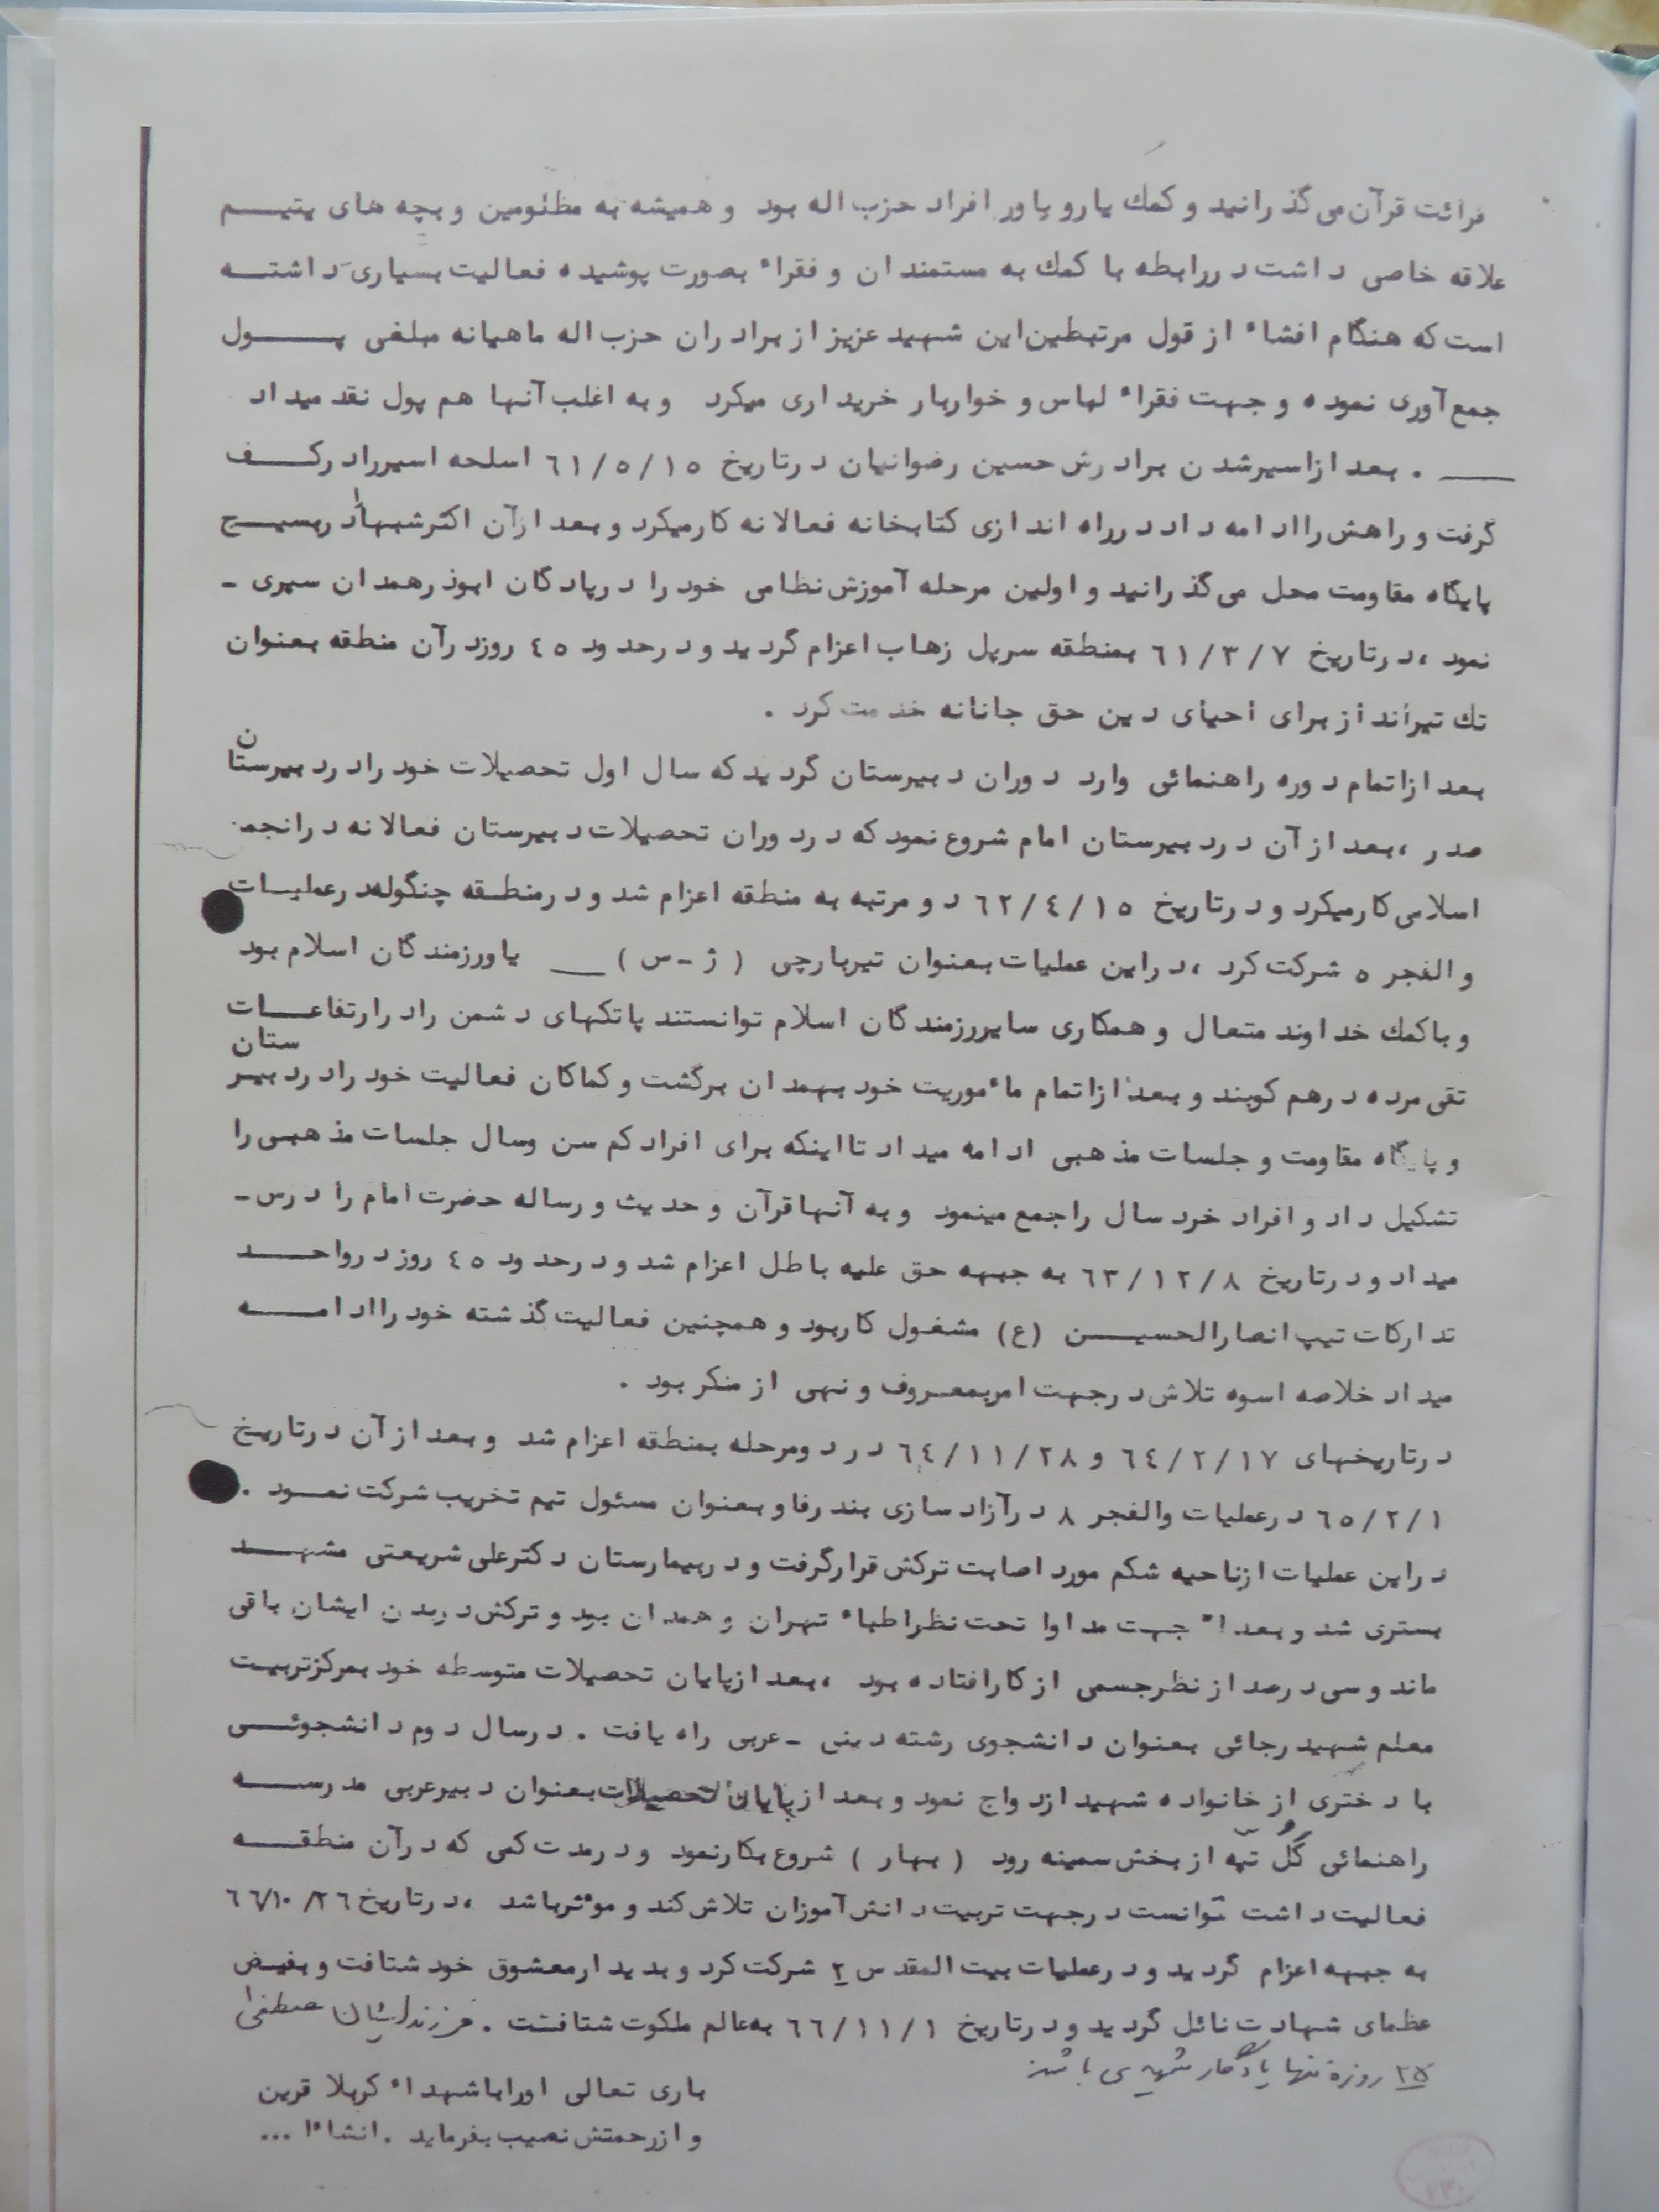 قرائت قرآن می‌گذرانید و کمك یار و یاور افراد حزب اله بود و همیشه به مظلومین و بچه های یتیم
علاقه خاصی داشت در رابطه با کمك به مستمندان و فقراء بصورت پوشیده فعالیت بسیاری داشته
است که هنگام افشاء از قول مرتبطین این شهید عزیز از برادران حزب اله ماهیانه مبلغی پول
جمع آوری نموده و جهت فقراء لباس و خواربار خریداری میکرد و به اغلب آنها هم پول نقد میداد
. بعد از اسیر شدن برادرش حسین رضوانیان در تاریخ ٦١/٥/١٥ اسلحه اسیر را در کف
گرفت و راهش را ادامه داد در راه اندازی کتابخانه فعالانه کار میکرد و بعد از آن اکثر شبها را در بسیج
پایگاه مقاومت محل می‌گذرانید و اولین مرحله آموزش نظامی خود را در پادگان ابوذر همدان سپری -
نمود ، در تاریخ ٦١/٣/٧ بمنطقه سرپل زهاب اعزام گردید و در حدود ٤٥ روز در آن منطقه بعنوان
تك تیرانداز برای احیای دین حق جانانه خدمت کرد .
بعد از اتمام دوره راهنمائی وارد دوران دبیرستان گردید که سال اول تحصیلات خود را در دبیرستان
صدر ، بعد از آن در دبیرستان امام شروع نمود که در دوران تحصیلات دبیرستان فعالانه در انجمـ
اسلامی کار میکرد و در تاریخ ٦٢/٤/١٥ دو مرتبه به منطقه اعزام شد و در منطقه چنگوله در عملیات
و الفجر ٥ شرکت کرد ، در این عملیات بعنوان تیربارچی ( ژ - س ) یاور رزمندگان اسلام بود
و با کمك خداوند متعال و همکاری سایر رزمندگان اسلام توانستند پاتکهای دشمن را در ارتفاعات
تقی مرده درهم کوبند و بعد از اتمام مأموریت خود بهمدان برگشت و کماکان فعالیت خود را در دبیرستان
و پایگاه مقاومت و جلسات مذهبی ادامه میداد تا اینکه برای افراد کم سن وسال جلسات مذهبی را
تشکیل داد و افراد خردسال را جمع مینمود و به آنها قرآن و حدیث و رساله حضرت امام را درس -
میداد و در تاریخ ٦٣/١٢/٨ به جبهه حق علیه باطل اعزام شد و در حدود ٤٥ روز در واحد
تدارکات تیپ انصارالحسین (ع) مشغول کار بود و همچنین فعالیت گذشته خود را ادامه
میداد خلاصه اسوه تلاش در جهت امر بمعروف و نهی از منکر بود .
در تاریخهای ٦٤/٢/١٧ و ٦٤/١١/٢٨ در دو مرحله بمنطقه اعزام شد و بعد از آن در تاریخ
٦٥/٢/١ در عملیات والفجر ٨ در آزاد سازی بندر فاو بعنوان مسئول تیم تخریب شرکت نمود .
در این عملیات از ناحیه شکم مورد اصابت ترکش قرار گرفت و در بیمارستان دکتر علی شریعتی مشهد
بستری شد و بعداً جهت مداوا تحت نظر اطباء تهران و همدان بود و ترکش در بدن ایشان باقی
ماند و سی درصد از نظر جسمی از کار افتاده بود ، بعد از پایان تحصیلات متوسطه خود بمرکز تربیت
معلم شهید رجائی بعنوان دانشجوی رشته دینی - عربی راه یافت . در سال دوم دانشجوئی
با دختری از خانواده شهید ازدواج نمود و بعد از پایان تحصیلات بعنوان دبیر عربی مدرسه
راهنمائی گل تپه از بخش سمینه رود ( بهار ) شروع بکار نمود و در مدت کمی که در آن منطقه
فعالیت داشت توانست در جهت تربیت دانش آموزان تلاش کند و مؤثر باشد ، در تاریخ ٦٦/١٠/٢٦
به جبهه اعزام گردید و در عملیات بیت المقدس ٢ شرکت کرد و بدیدار معشوق خود شتافت و بفیض
عظمای شهادت نائل گردید و در تاریخ ٦٦/١١/١ به عالم ملکوت شتافت . فرزند ایشان مصطفی
٢٥ روزه تنها یادگار شهید می باشد
باری تعالی او را با شهداء کربلا قرین
و از رحمتش نصیب بفرماید . انشاءا ...